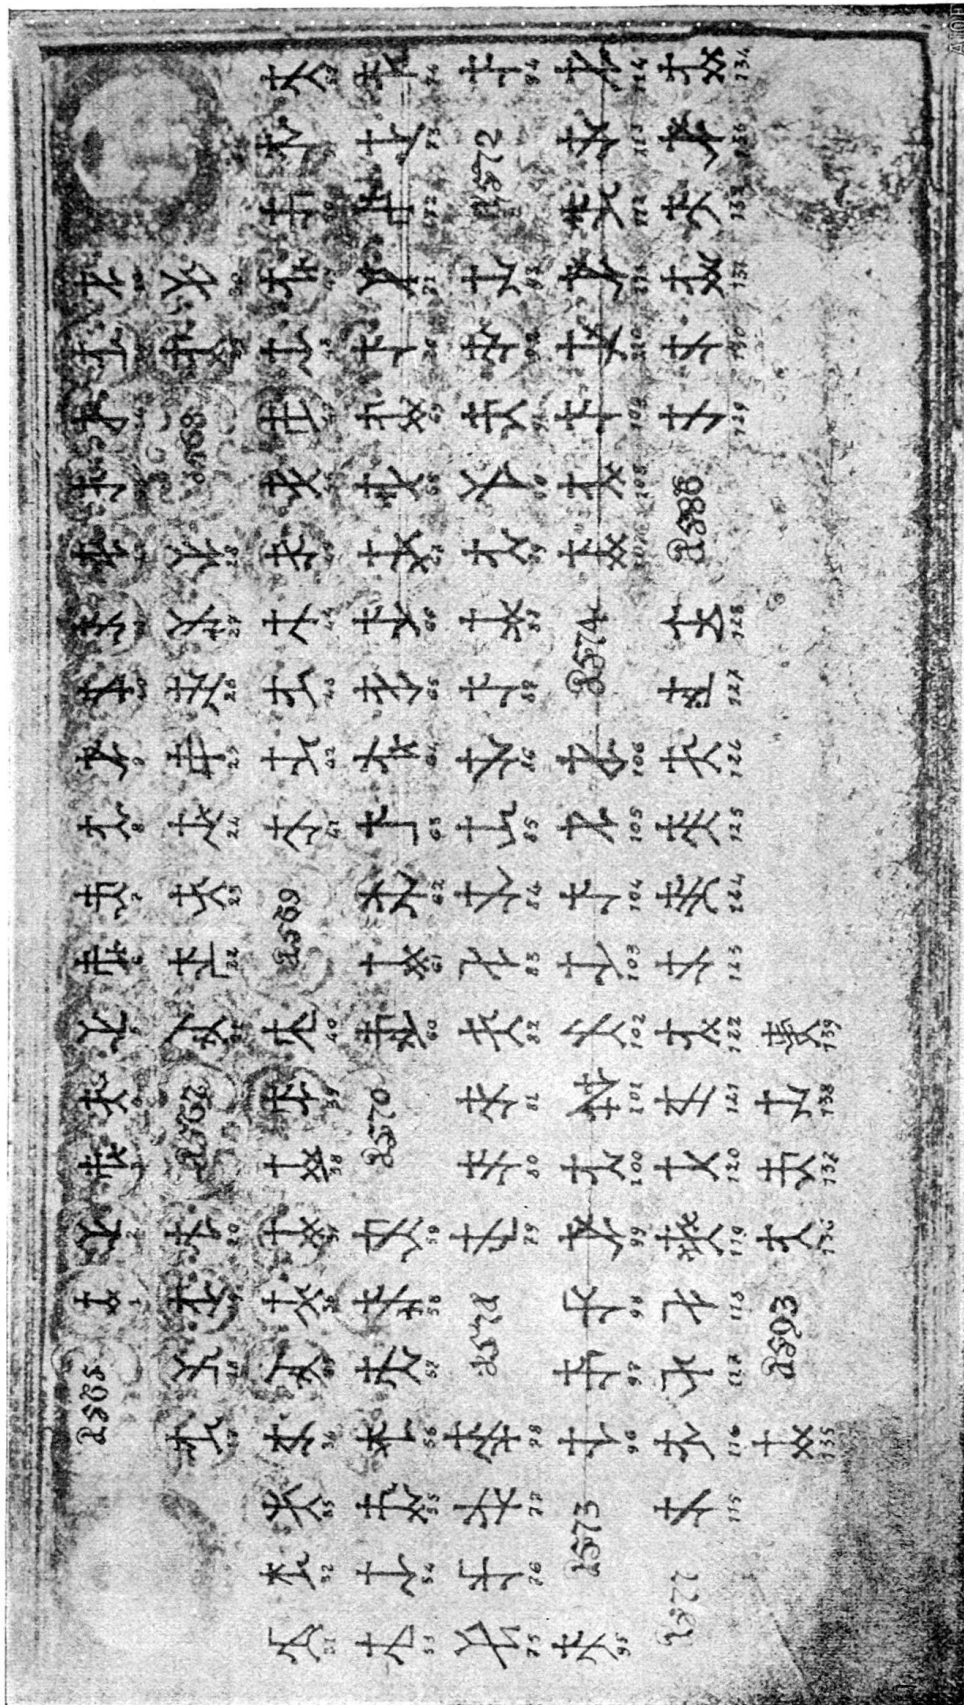 1565 1 2 3 4 5 6 7 8 9 10 11 12 13 14 15 16
17 18 19 20 1567 21 22 23 24 25 26 27 28 1568 29 30
31 32 33 34 35 36 37 38 39 40 1569 41 42 43 44 45 46 47 48 49 50 51 52
53 54 55 56 57 58 59 1570 60 61 62 63 64 65 66 67 68 69 70 71 72 73 74
75 76 77 78 1571 79 80 81 82 83 84 85 86 87 88 89 90 91 92 93 1572 94
95 1573 96 97 98 99 100 101 102 103 104 105 106 1574 107 108 109 110 111 112 113 114
1577 115 116 117 118 119 120 121 122 123 124 125 126 127 128 1586 129 130 131 132 133 134
135 1593 136 137 138 139